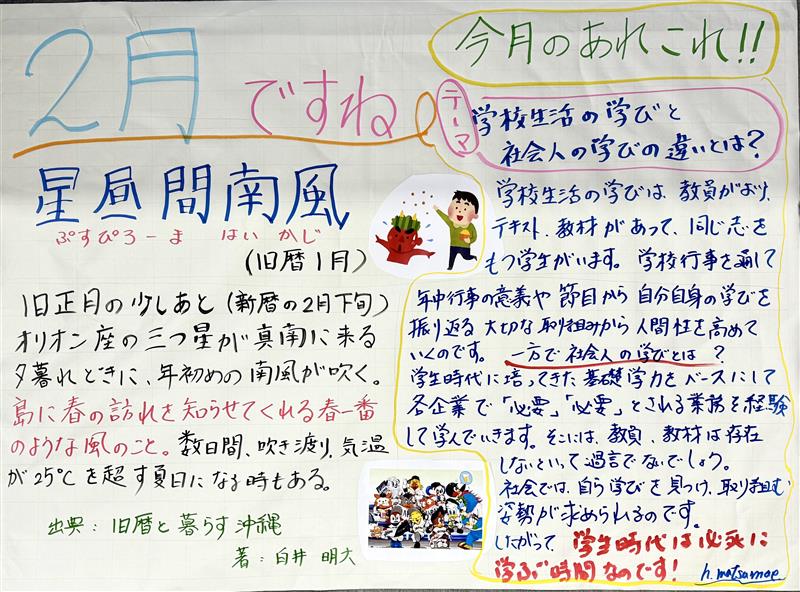 2月ですね
星昼間南風
ぷすぴろーま はいかじ
(旧暦1月)
旧正月の少しあと(新暦の2月下旬)
オリオン座の三つ星が真南に来る
夕暮れときに、年初めの南風が吹く。
島に春の訪れを知らせてくれる春一番
のような風のこと。数日間、吹き渡り、気温
が25℃を超す夏日になる時もある。
出典:旧暦と暮らす沖縄
著:白井 明大
今月のあれこれ!!
テーマ
学校生活の学びと
社会人の学びの違いとは?
学校生活の学びは、教員がおり、
テキスト、教材があって、同じ志を
もつ学生がいます。学校行事を通して
年中行事の意義や節目から自分自身の学びを
振り返る大切な取り組みから人間性を高めて
いくのです。一方で社会人の学びとは?
学生時代に培ってきた基礎学力をベースにして
各企業で「必要」「必要」とされる業務を経験
して学んでいきます。そこには、教員、教材は存在
しないといって過言でないでしょう。
社会では、自ら学びを見つけ、取り組む
姿勢が求められるのです。
したがって、学生時代は必死に
学ぶ時間なのです!
h.matsumoe